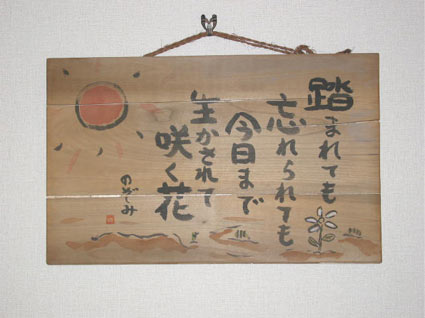 踏まれても
忘れられても
今日まで
生かされて
咲く花
のぞみ